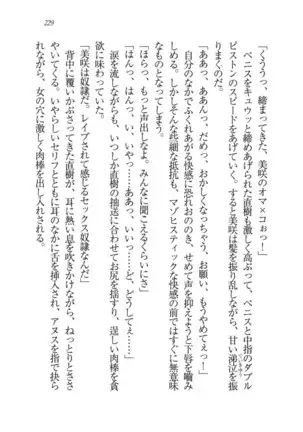 229
「くううっ、締まってきた、美咲のオマ×コぉっ！」
ペニスをキュウッと締めあげられた直樹も激しく高ぶって、ペニスと中指のダブル
ピストンのスピードをあげていく。すると美咲は髪を振り乱しながら、甘い涕泣を振
りまくのだ。
「ああう、ああんっ、だめっ、おかしくなっちゃう、お願い、もうやめてぇっ！」
自分のなかでふくれあがる快感に恐れおののき、せめて声を抑えようと下唇を噛み
しめる。しかしそんな些細な抵抗も、マゾヒスティックな快感の前ではすぐに無意味
なものとなってしまう。
「ほらっ、もっと声出しなよ。みんなに聞こえるくらいにさ」
「はんっ、んはっ、い、いや……あああっ、だめぇっ！」
涙を流しながら、いつしか直樹の抽送に合わせてお尻を揺すり、逞しい肉棒を貪
欲に味わっていく。
「美咲は奴隷だ。レイプされて感じるセックス奴隷なんだ」
背中に覆いかぶさってきた直樹が、耳に熱い息を吹きかけながら、ねっとりとささ
やいてくる。いやらしいセリフとともに耳のなかに舌を挿入され、アヌスを指で抉ら
れながら、女の穴に激しく肉棒を出し入れされる。